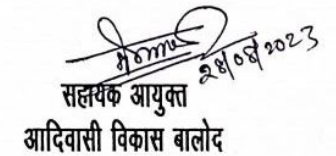 28/08/2023
सहायक आयुक्त
आदिवासी विकास बालोद